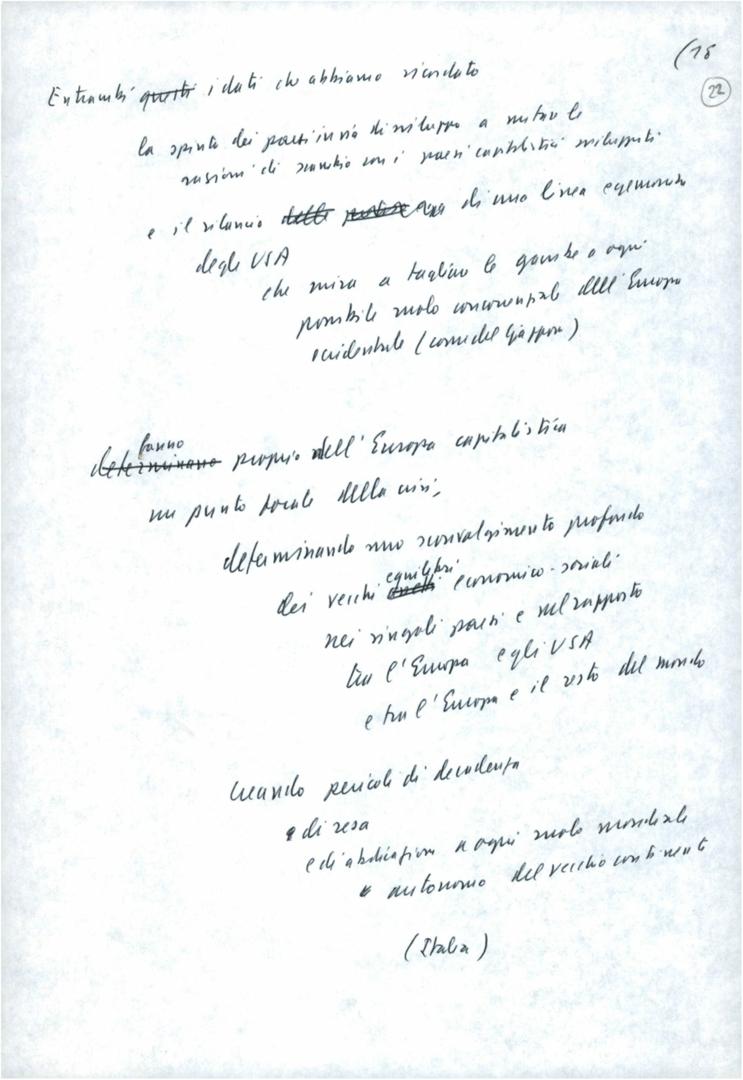 (18
22
Entrambi questi i dati che abbiamo ricordato
la spinta dei paesi in via di sviluppo a mutare le
ragioni di scambio con i paesi capitalistici sviluppati
e il rilancio delle di una linea egemonica
degli USA
che mira a tagliare le gambe a ogni
possibile ruolo concorrenziale dell'Europa
occidentale (come del Giappone)
fanno
determinano proprio dell'Europa capitalistica
un punto focale della crisi,
determinando uno sconvolgimento profondo
equilibri
dei vecchi economico-sociali
nei singoli paesi e nel rapporto
tra l'Europa e gli USA
e tra l'Europa e il resto del mondo
creando pericoli di decadenza
e di resa
e di abdicazione a ogni ruolo mondiale
autonomo del vecchio continente
(Italia)